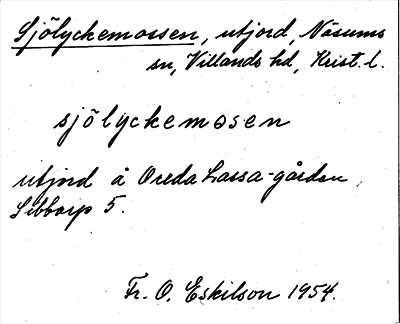 Sjölyckemossen, utjord, Näsums
sn, Villands hd, Krist. l.
sjölyckemosen
utjord å Oreda Lassa-gården,
Sibbarp 5.
Fr. O. Eskilson 1954.